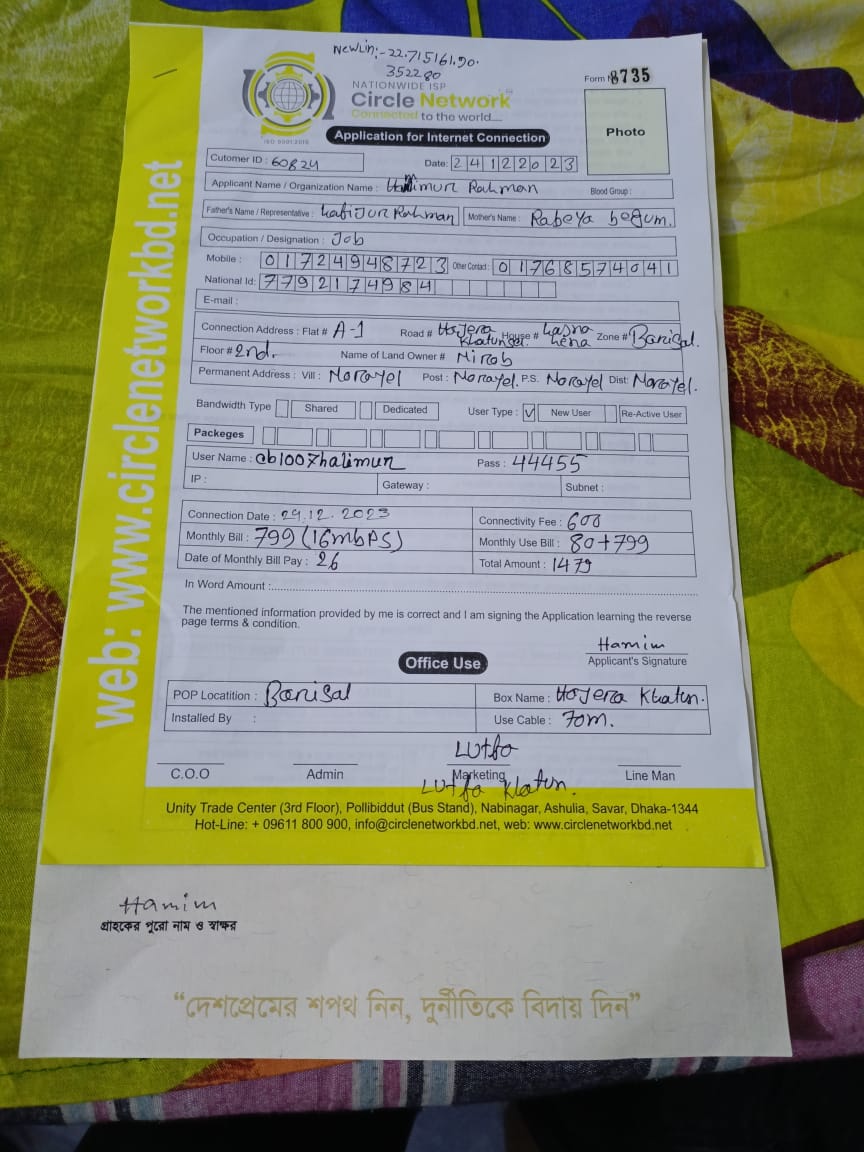 NewLin:-22.715161,90.
352280
Form N 8735
NATIONWIDE ISP
Circle Network
Connected to the world....
ISO 9001:2015
Application for Internet Connection
Photo
Cutomer ID : 60824 Date: 24122023
Applicant Name / Organization Name : Halimur Rahman Blood Group :
Father's Name / Representative : Hafijur Rahman Mother's Name : Rabeya begum.
Occupation / Designation : Job
Mobile : 01724948723 Other Contact : 01768574041
National Id: 7792174984
E-mail :
Connection Address : Flat # A-1 Road # Hojera Khatun House # Zone # Barisal.
Floor # 2nd. Name of Land Owner # Mirab
Permanent Address : Vill : Norayel Post : Norayel. P.S. Norayel Dist: Norayel.
Bandwidth Type Shared Dedicated User Type : ✓ New User Re-Active User
Packeges
User Name : cb1007halimur Pass : 44455
IP : Gateway : Subnet :
Connection Date : 24.12.2023 Connectivity Fee : 600
Monthly Bill : 799 (16mbps) Monthly Use Bill : 80+799
Date of Monthly Bill Pay : 26 Total Amount : 1479
In Word Amount :
The mentioned information provided by me is correct and I am signing the Application learning the reverse
page terms & condition.
Hamim
Applicant's Signature
Office Use
POP Locatition : Barisal Box Name : Hojera Khatun.
Installed By : Use Cable : 70m.
Lutfa
C.O.O Admin Marketing Line Man
Lutfa Khatun.
Unity Trade Center (3rd Floor), Pollibiddut (Bus Stand), Nabinagar, Ashulia, Savar, Dhaka-1344
Hot-Line: + 09611 800 900, info@circlenetworkbd.net, web: www.circlenetworkbd.net
web: www.circlenetworkbd.net
Hamim
গ্রাহকের পুরো নাম ও স্বাক্ষর
“দেশপ্রেমের শপথ নিন, দুর্নীতিকে বিদায় দিন”